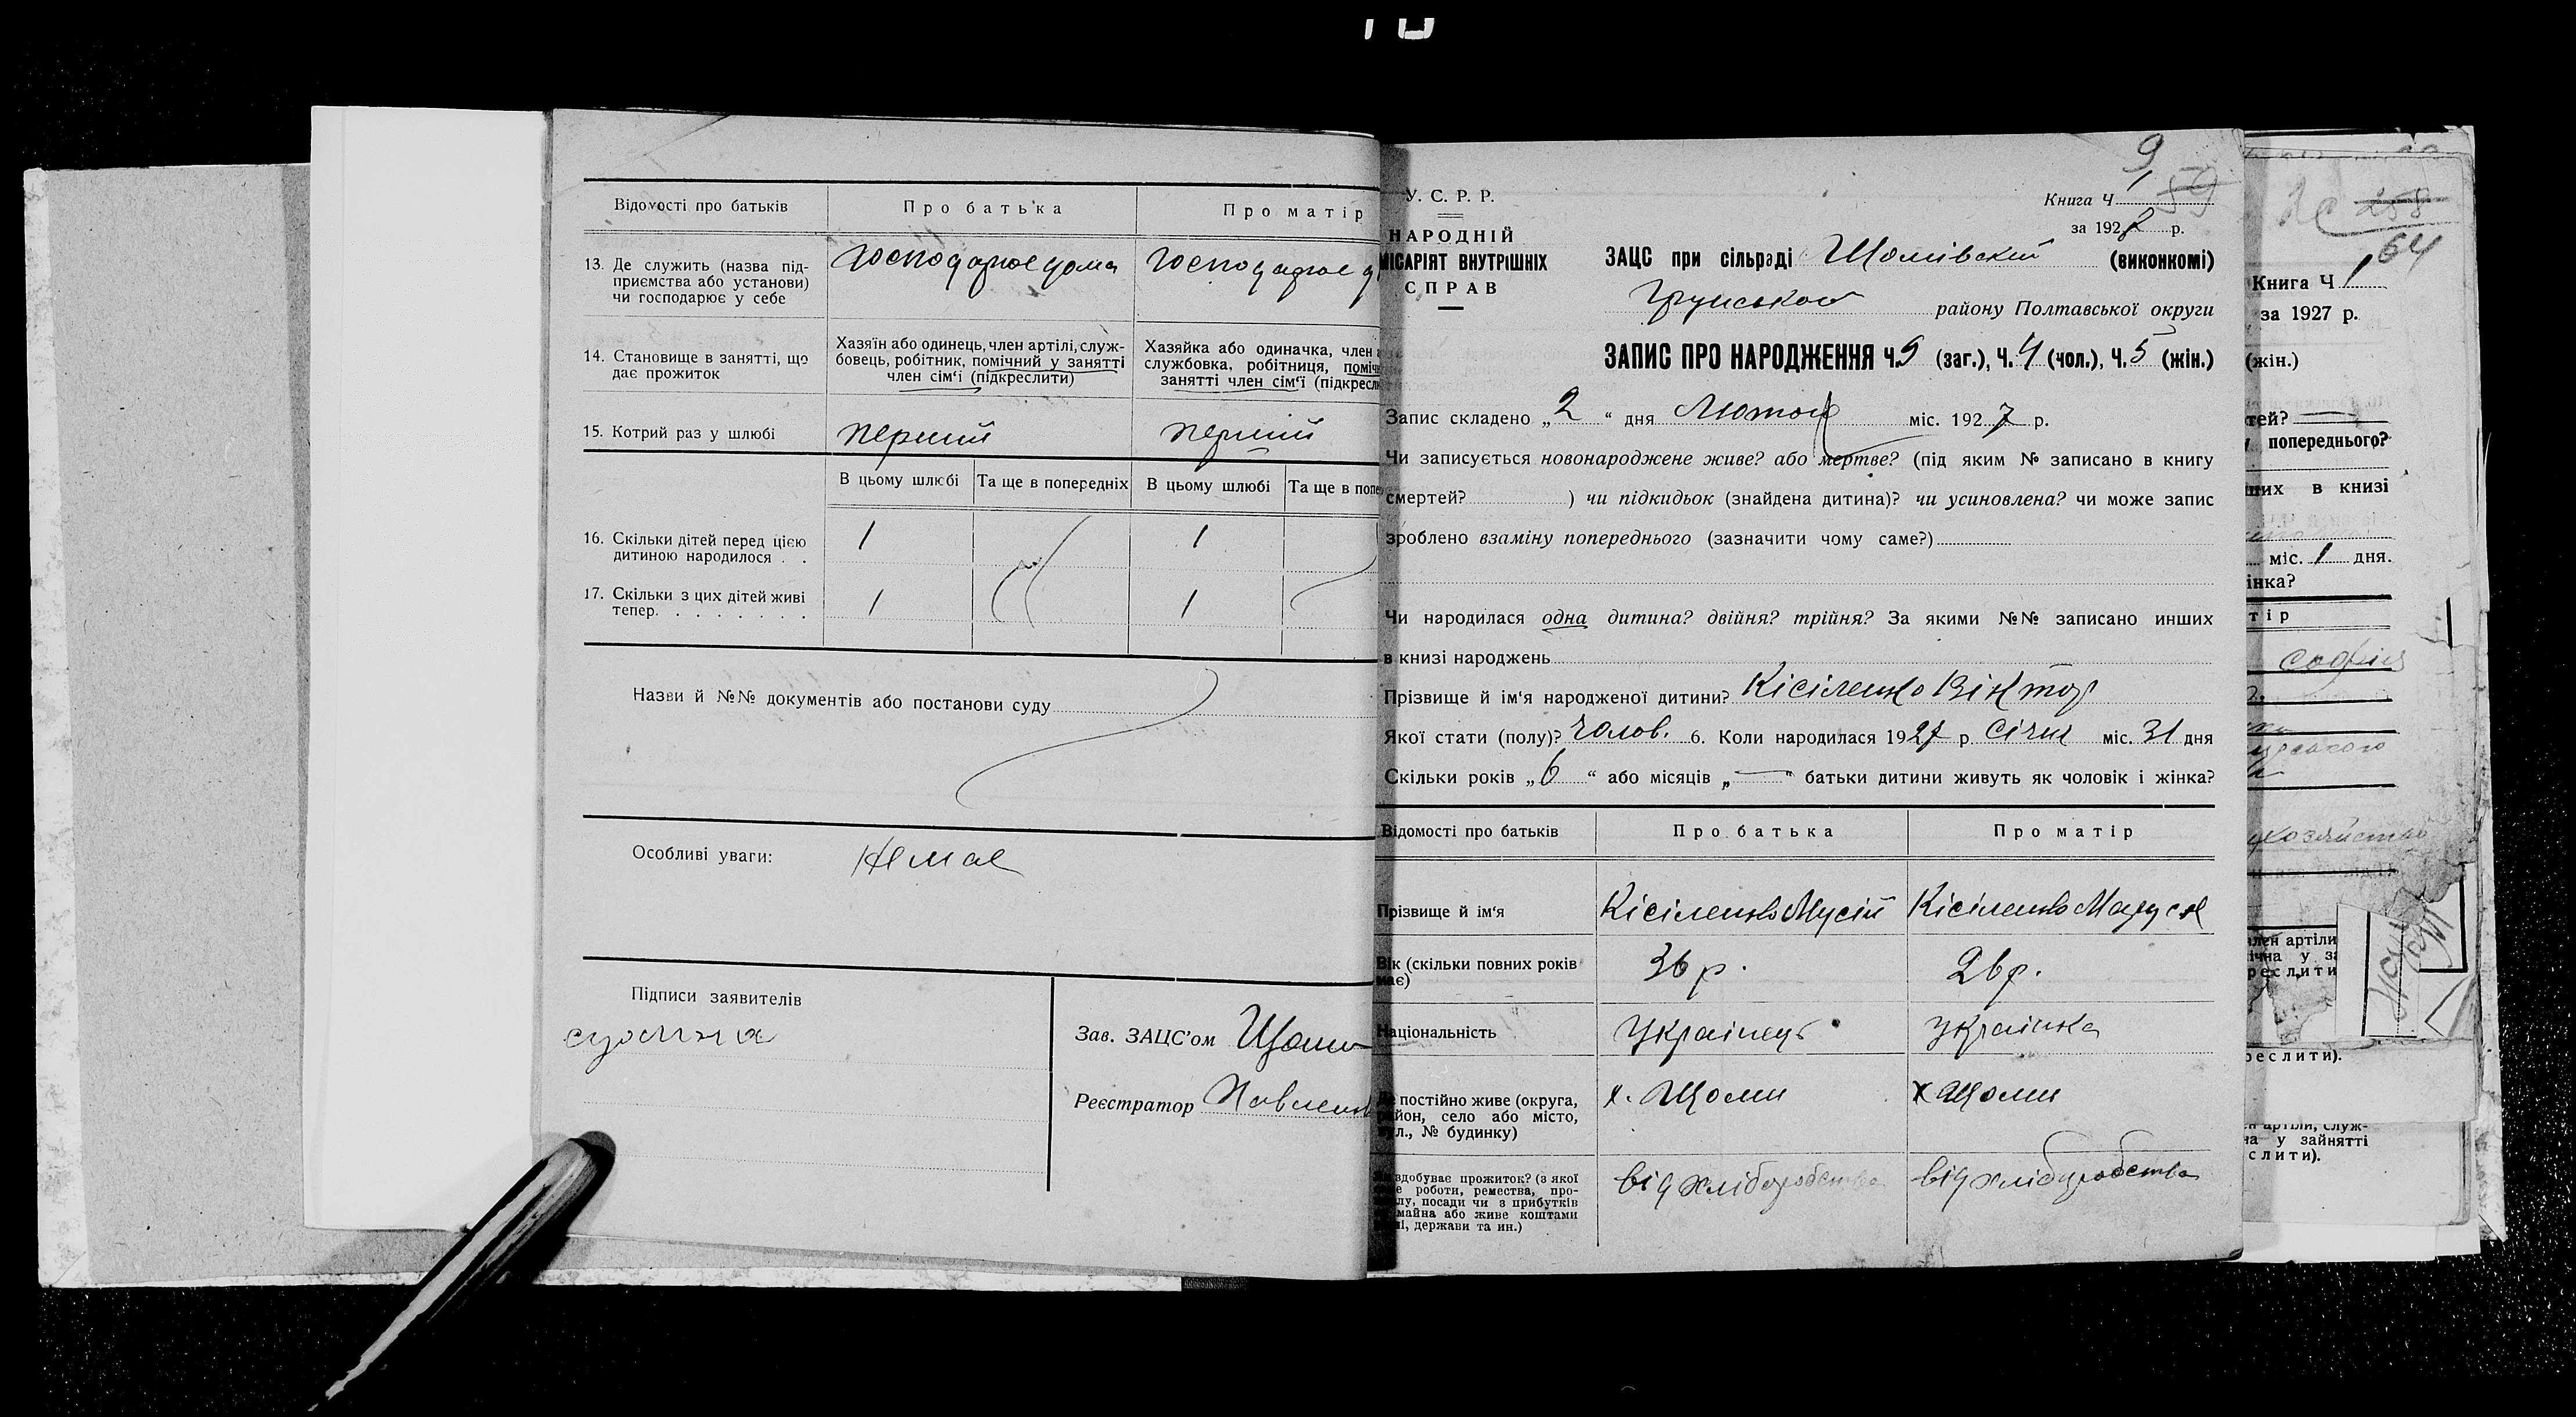 Відомості про батьків
Про батька
Про матір
13. Де служить (назва під-
приємства або установи)
чи господарює у себе
господарює дома
господарює д
14. Становище в занятті, що
дає прожиток
Хазяїн або одинець, член артілі, служ-
бовець, робітник, помічний у занятті
член сім'ї (підкреслити)
Хазяйка або одиначка, член
службовка, робітниця, поміч
занятті член сім'ї (підкресл
15. Котрий раз у шлюбі
перший
перший
В цьому шлюбі
Та ще в попередніх
В цьому шлюбі
Та ще в попе
16. Скільки дітей перед цією
дитиною народилося . .
1
1
17. Скільки з цих дітей живі
тепер. . . . . . . .
1
1
Назви й №№ документів або постанови суду
Особливі уваги:
Немає
Підписи заявителів
Зав. ЗАЦС'ом Щоми
Реєстратор Павленк
9
59
У. С. Р. Р.
НАРОДНІЙ
МІСАРІЯТ ВНУТРІШНІХ
СПРАВ
Книга Ч 1
за 192 р.
ЗАЦС при сільраді Щомівский (виконкомі)
району Полтавської округи
ЗАПИС ПРО НАРОДЖЕННЯ Ч.9 (заг.), Ч.4 (чол.), Ч.5 (жін.)
Запис складено „2“ дня Лютого міс. 1927 р.
Чи записується новонароджене живе? або мертве? (під яким № записано в книгу
смертей? ) чи підкидьок (знайдена дитина)? чи усиновлена? чи може запис
зроблено взаміну попереднього (зазначити чому саме?)
Чи народилася одна дитина? двійня? трійня? За якими №№ записано инших
в книзі народжень
Прізвище й ім'я народженої дитини? Кісіленко Віктор
Якої стати (полу)? Чолов. 6. Коли народилася 1927 р Січня міс. 31 дня
Скільки років „6“ або місяців „—“ батьки дитини живуть як чоловік і жінка?
Відомості про батьків
Про батька
Про матір
Прізвище й ім'я
Кісіленко Мусій
Кісіленко Маруся
Вік (скільки повних років
має)
36 р.
26 р.
Національність
Українець
українка
постійно живе (округа,
йон, село або місто,
л., № будинку)
х. Щоми
х Щоми
здобуває прожиток? (з якої
роботи, ремества, про-
лу, посади чи з прибутків
майна або живе коштами
і, держави та ин.)
від хліборобства
від хліборобства
258
64
Книга Ч 1
за 1927 р.
(жін.)
тей?
попереднього?
них в книзі
міс. 1 дня.
інка?
тір
софія
хозяйство
член артили
ічна у за
реслити
реслити).
н артили, служ-
на у зайнятті
слити).